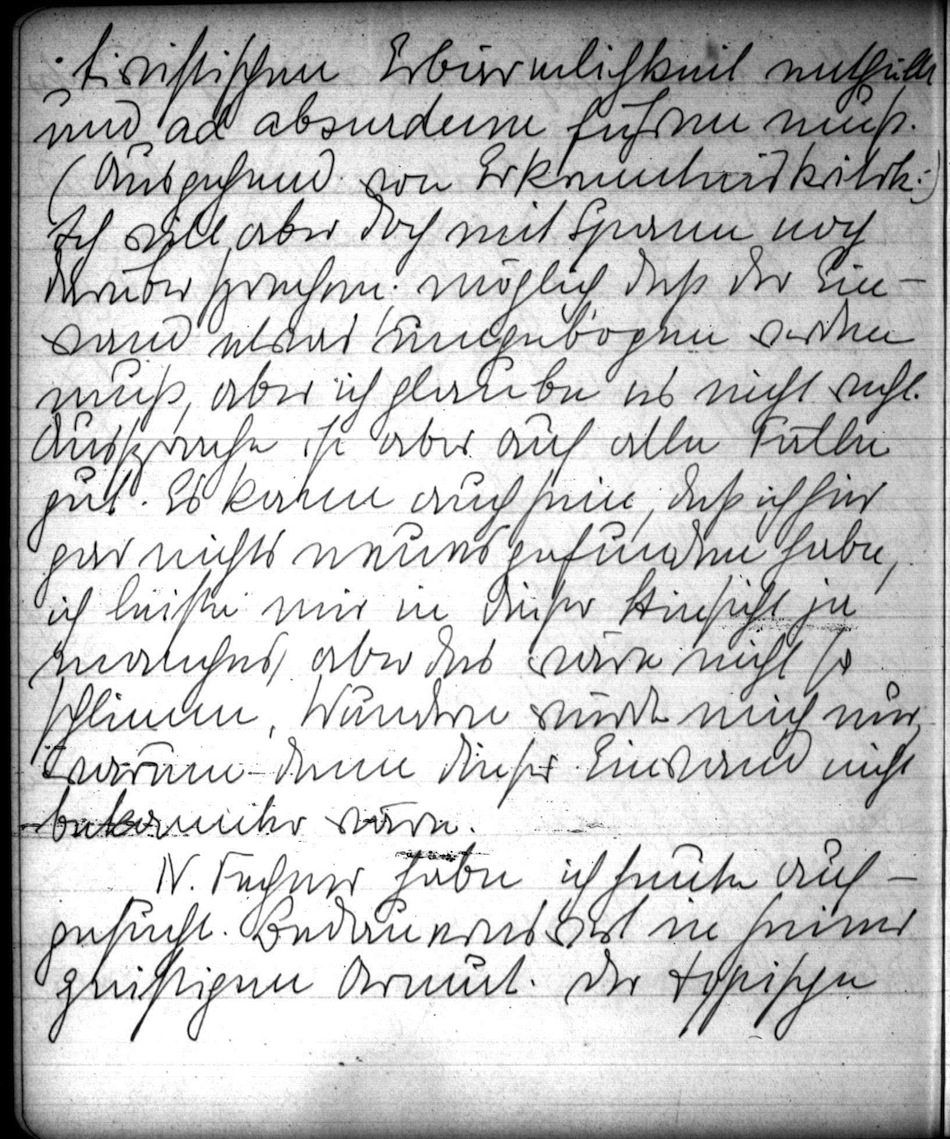 tivistischen Erbärmlichkeit enthüllt
und ad absurdum führen muß.
(Ausgehend von Erkenntniskritik.)
Ich will aber doch mit Spann noch
darüber sprechen. möglich daß der Ein-
wand etwas umgebogen werden
muß, aber ich glaube es nicht recht.
Aussprache ist aber auf alle Fälle
gut. Es kann auch sein, daß ich hier
gar nichts neues gefunden habe,
ich leiste mir in dieser Hinsicht ja
manches, aber das wäre nicht so
schlimm. Wundern würde mich nur,
warum denn dieser Einwand nicht
bekannter wäre.
N. Fechner habe ich heute auf-
gesucht. Bedauernswert in seiner
geistigen Armut. der typische